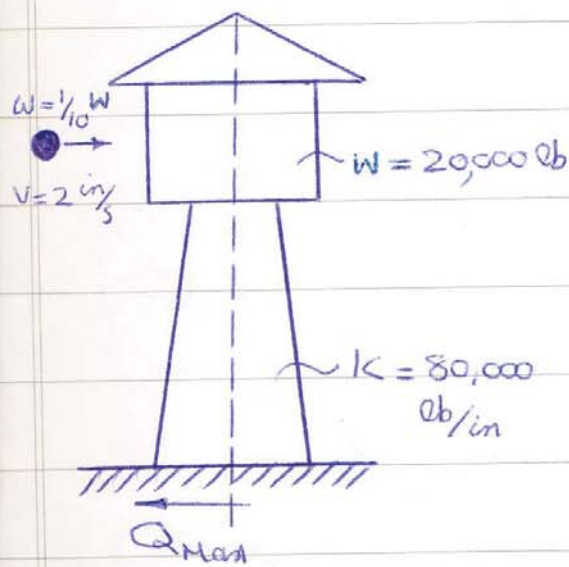 ω = 1/10 W
V = 2 in/s
W = 20,000 lb
K = 80,000
lb/in
Q Max